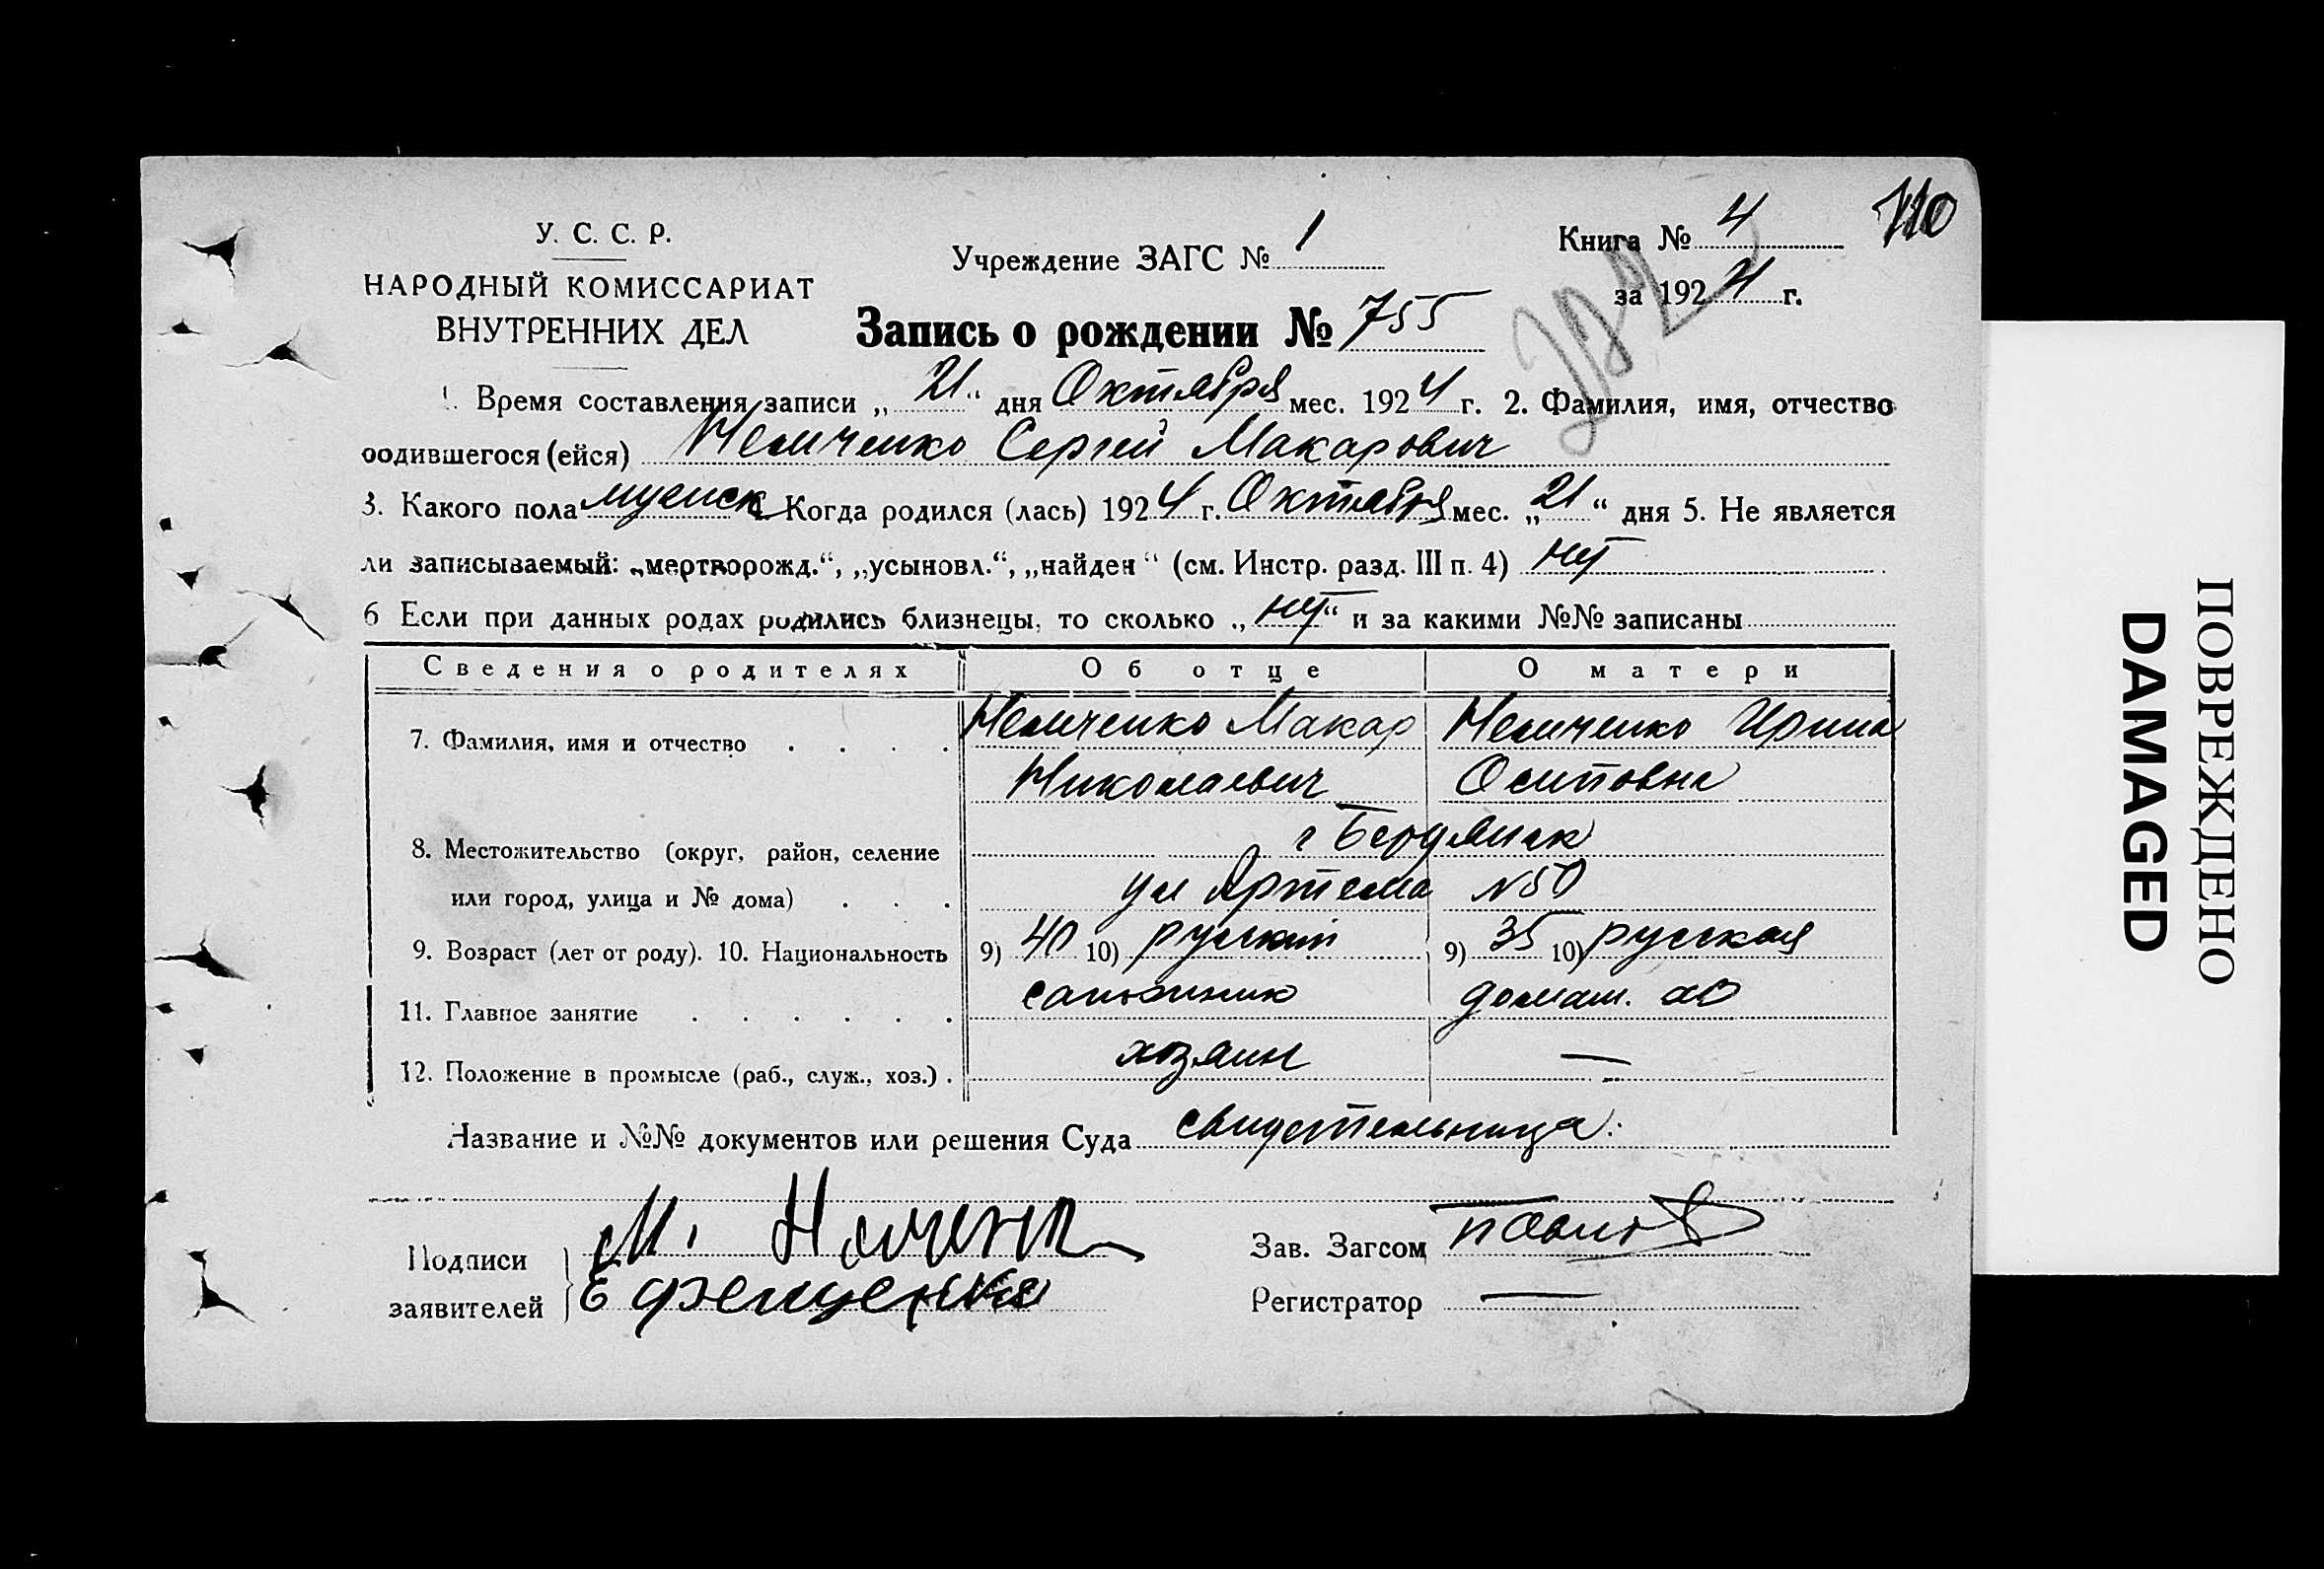 У. С. С. Р.
НАРОДНЫЙ КОМИССАРИАТ
ВНУТРЕННИХ ДЕЛ
Учреждение ЗАГС № 1
Книга № 4
110
за 1924 г.
Запись о рождении № 755
1. Время составления записи „21“ дня Октября мес. 1924 г. 2. Фамилия, имя, отчество
родившегося (ейся) Немченко Сергей Макарович
3. Какого пола мужск 4. Когда родился (лась) 1924 г. Октября мес. „21“ дня 5. Не является
ли записываемый: „мертворожд.“, „усыновл.“, „найден“ (см. Инстр. разд. III п. 4) нет
6 Если при данных родах родились близнецы, то сколько „нет“ и за какими №№ записаны
Сведения о родителях Об отце О матери
7. Фамилия, имя и отчество . . . . Немченко Макар Немченко Ирина
Николаевич Осиповна
8. Местожительство (округ, район, селение г Бердянск
или город, улица и № дома) . . . ул Артема №50
9. Возраст (лет от роду). 10. Национальность 9) 40 10) русский 9) 35 10) русская
11. Главное занятие . . . . . . сапожник домаш. хо
12. Положение в промысле (раб., служ., хоз.) . хозяин —
Название и №№ документов или решения Суда свидетельница.
Подписи
заявителей
М. Немченк
Е Фещенко
Зав. Загсом
Регистратор —
ПОВРЕЖДЕНО
DAMAGED